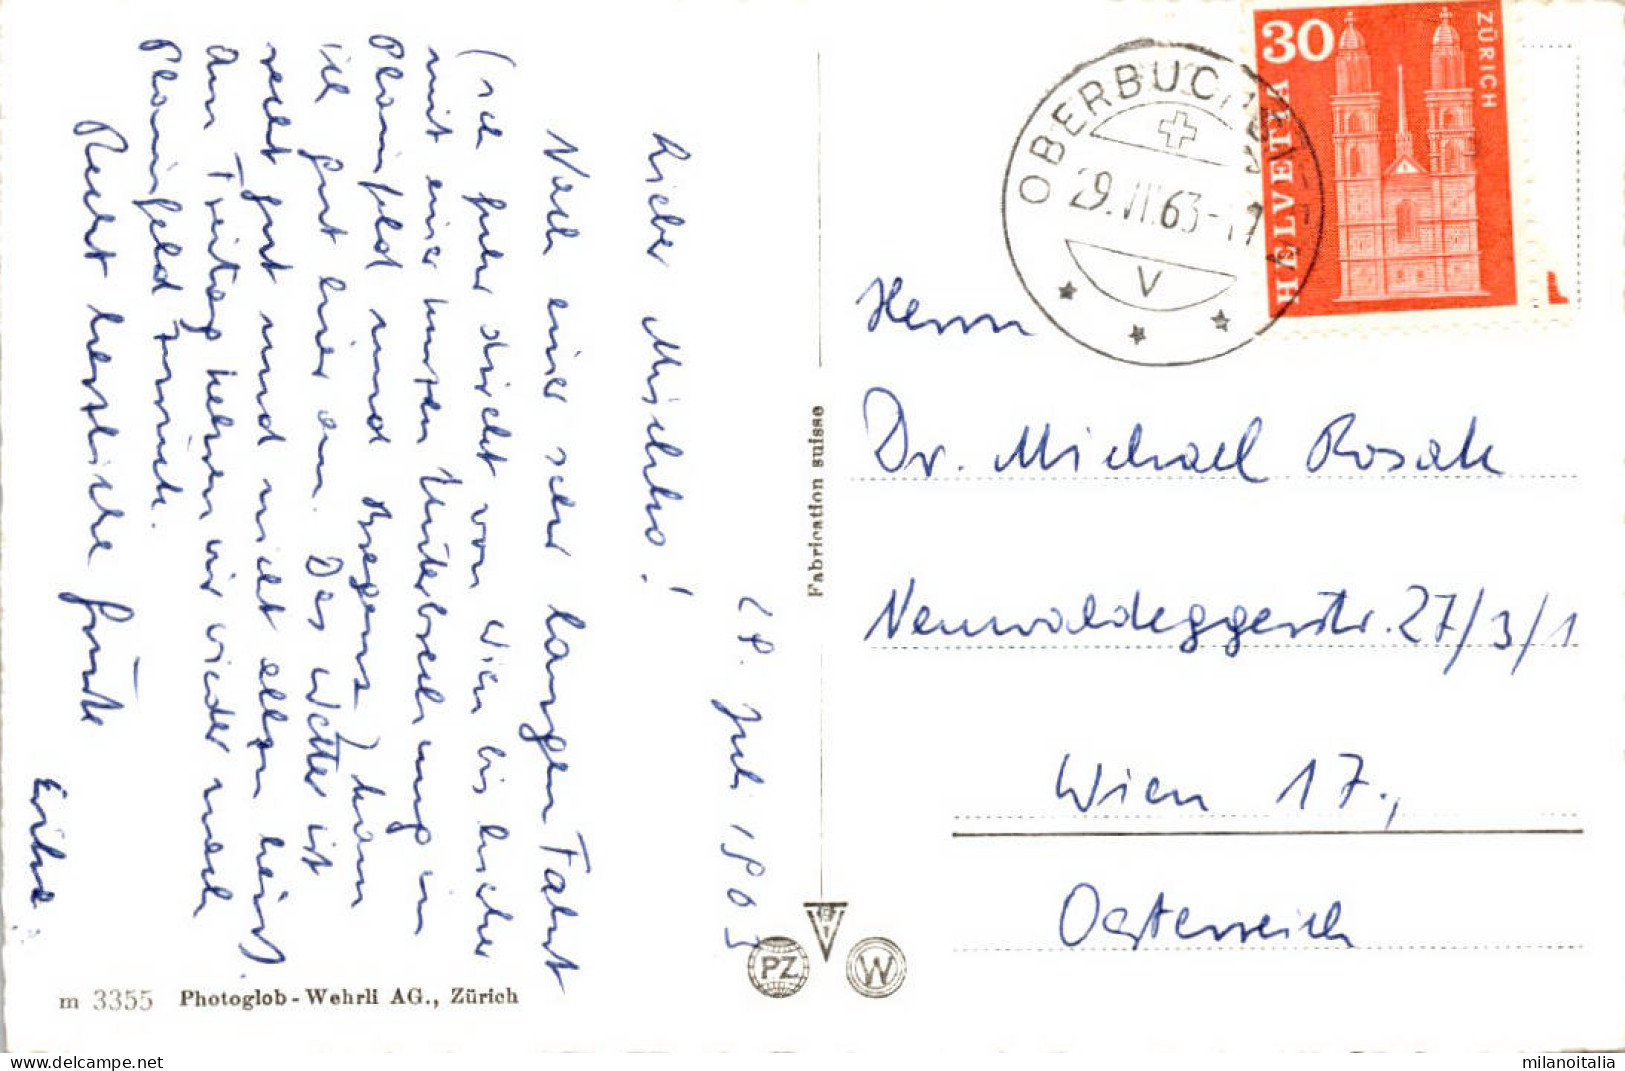 28. Juli 1963
Lieber Mischko!
Nach einer sehr langen Fahrt
(ich fuhr direkt von Wien bis hieher
mit einer kurzen Unterbrechung in
Plainfeld und Bregenz) kam
ich gut hier an. Das Wetter ist
recht gut und nicht allzu heiss.
Am Freitag kehren wir wieder nach
Plainfeld zurück.
Recht herzliche Grüße
Erika
m 3355 Photoglob-Wehrli AG., Zürich
Fabrication suisse
PZ
W
30
HELVETIA
ZÜRICH
OBERBUCHSITEN
29.VII.63-17
V
Herrn
Dr. Michael Rosak
Neuwaldeggerstr. 27/3/1
Wien 17.,
Oesterreich
www.delcampe.net
milanoitalia